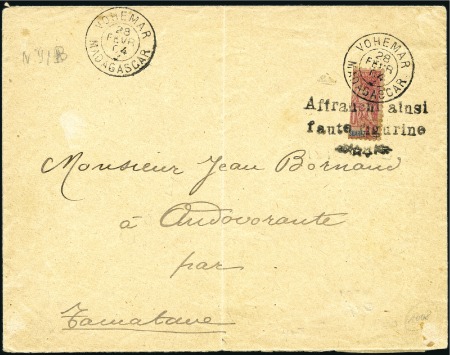 VOHEMAR
28
FEVR
04
MADAGASCAR
VOHEMAR
28
FEVR
04
MADAGASCAR
Affranchi ainsi
faute figurine
Monsieur Jean Bornand
à Andovorante
par
Tamatave